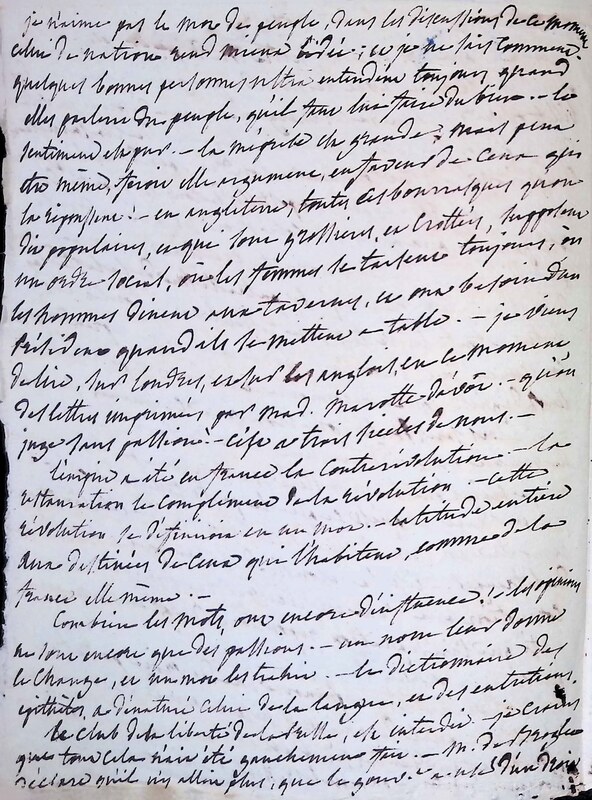 je n'aime pas le mot de peuple, dans les discussions de ce moment
celui de nation rend mieux l'idée; et je ne sais comment
quelques bonnes personnes ultra entendent toujours quand
elles parlent du peuple, qu'il faut lui faire du bien. - le
sentiment est pur. - la méprise est grande; mais peut
être même, seroit elle argument, en faveur de ceux qui
la repoussent! - en angleterre, toutes ces bourrasques qu'on
dit populaires, et qui sont grossières, et crottées, supposent
un ordre social, où les femmes se taisent toujours, où
les hommes dinent aux tavernes, et ont besoin d'un
Président quand ils se mettent a table. - je viens
de lire, sur londres, et sur les anglois, en ce moment
des lettres imprimées par mad. - qu'on
juge sans passion! - c'est a trois siècles de nous. -
l'empire a été en france la Contrerévolution. - la
restauration le complément de la révolution. - cette
révolution se définira en un mot. - latitude entière
aux destinées de ceux qui l'habitent, comme de la
france elle même. -
Combien les mots, ont encore d'influence! - les opinions
ne sont encore que des passions. - un nom leur donne
le change, et un mot les trahit. - le dictionnaire des
épithètes, a dénaturé celui de la langue, et des entretiens.
le club de la liberté de la presse, est interdit - je crois
que tout cela n'ait été gauchement fait. - M. de Broglie
déclare qu'il n'y alloit plus, que le gouv. a usé d'un droit